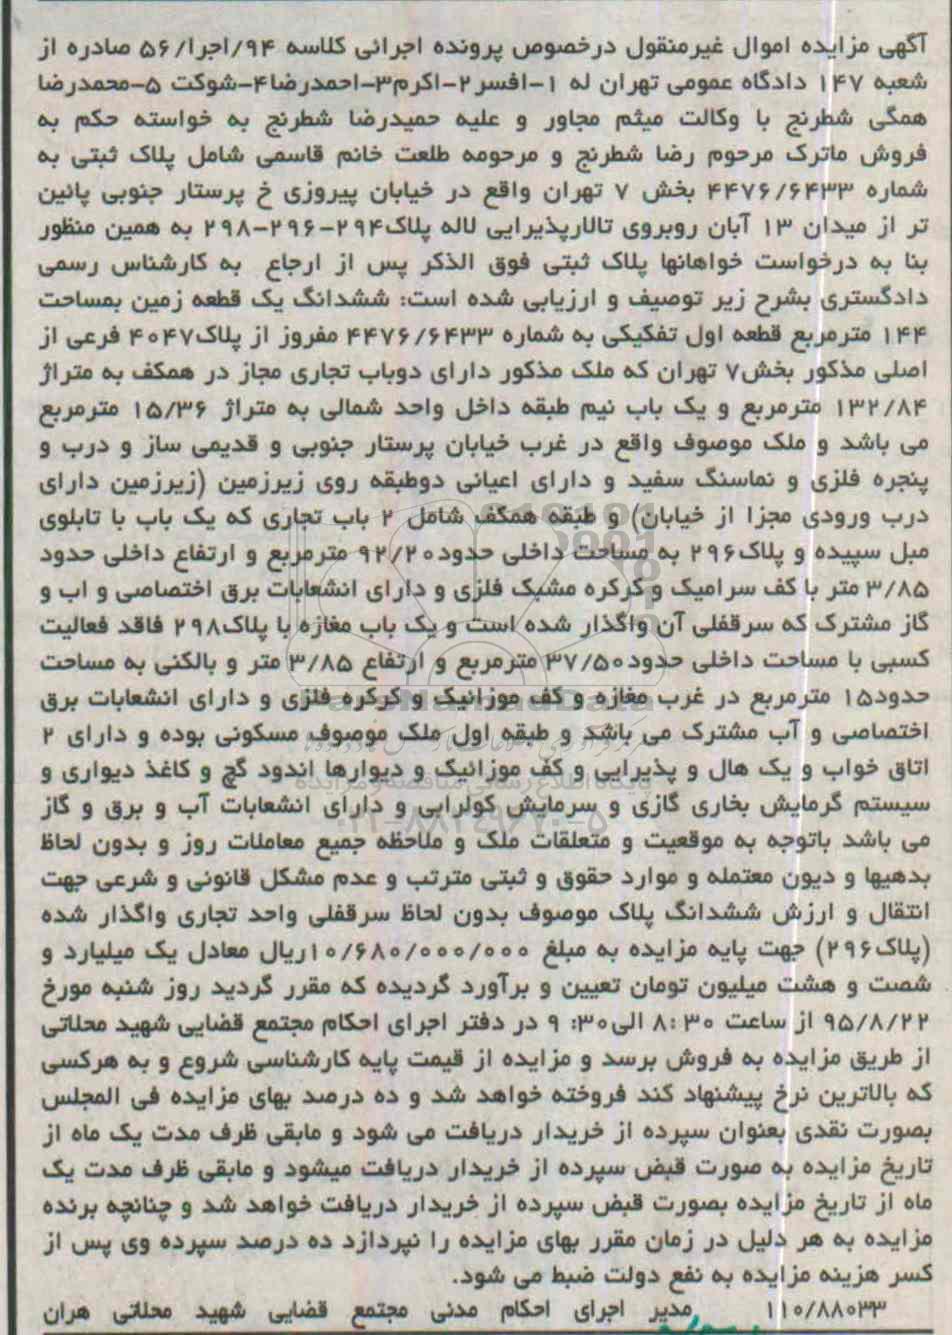 آگهی مزایده اموال غیرمنقول درخصوص پرونده اجرائی کلاسه ۹۴/اجرا/۵۶ صادره از
شعبه ۱۴۷ دادگاه عمومی تهران له ۱-افسر۲-اکرم۳-احمدرضا۴-شوکت ۵-محمدرضا
همگی شطرنج با وکالت میثم مجاور و علیه حمیدرضا شطرنج به خواسته حکم به
فروش ماترک مرحوم رضا شطرنج و مرحومه طلعت خانم قاسمی شامل پلاک ثبتی به
شماره ۴۴۷۶/۶۴۳۳ بخش ۷ تهران واقع در خیابان پیروزی خ پرستار جنوبی پائین
تر از میدان ۱۳ آبان روبروی تالارپذیرایی لاله پلاک۲۹۴-۲۹۶-۲۹۸ به همین منظور
بنا به درخواست خواهانها پلاک ثبتی فوق الذکر پس از ارجاع به کارشناس رسمی
دادگستری بشرح زیر توصیف و ارزیابی شده است: ششدانگ یک قطعه زمین بمساحت
۱۴۴ مترمربع قطعه اول تفکیکی به شماره ۴۴۷۶/۶۴۳۳ مفروز از پلاک۴۰۴۷ فرعی از
اصلی مذکور بخش۷ تهران که ملک مذکور دارای دوباب تجاری مجاز در همکف به متراژ
۱۳۲/۸۴ مترمربع و یک باب نیم طبقه داخل واحد شمالی به متراژ ۱۵/۳۶ مترمربع
می باشد و ملک موصوف واقع در غرب خیابان پرستار جنوبی و قدیمی ساز و درب و
پنجره فلزی و نماسنگ سفید و دارای اعیانی دوطبقه روی زیرزمین (زیرزمین دارای
درب ورودی مجزا از خیابان) و طبقه همکف شامل ۲ باب تجاری که یک باب با تابلوی
مبل سپیده و پلاک۲۹۶ به مساحت داخلی حدود۹۲/۲۰ مترمربع و ارتفاع داخلی حدود
۳/۸۵ متر با کف سرامیک و کرکره مشبک فلزی و دارای انشعابات برق اختصاصی و اب و
گاز مشترک که سرقفلی آن واگذار شده است و یک باب مغازه با پلاک۲۹۸ فاقد فعالیت
کسبی با مساحت داخلی حدود۳۷/۵۰ مترمربع و ارتفاع ۳/۸۵ متر و بالکنی به مساحت
حدود۱۵ مترمربع در غرب مغازه و کف موزائیک و کرکره فلزی و دارای انشعابات برق
اختصاصی و آب مشترک می باشد و طبقه اول ملک موصوف مسکونی بوده و دارای ۲
اتاق خواب و یک هال و پذیرایی و کف موزائیک و دیوارها اندود گچ و کاغذ دیواری و
سیستم گرمایش بخاری گازی و سرمایش کولرابی و دارای انشعابات آب و برق و گاز
می باشد باتوجه به موقعیت و متعلقات ملک و ملاحظه جمیع معاملات روز و بدون لحاظ
بدهیها و دیون معتمله و موارد حقوق و ثبتی مترتب و عدم مشکل قانونی و شرعی جهت
انتقال و ارزش ششدانگ پلاک موصوف بدون لحاظ سرقفلی واحد تجاری واگذار شده
(پلاک۲۹۶) جهت پایه مزایده به مبلغ ۱۰/۶۸۰/۰۰۰/۰۰۰ریال معادل یک میلیارد و
شصت و هشت میلیون تومان تعیین و برآورد گردیده که مقرر گردید روز شنبه مورخ
۹۵/۸/۲۲ از ساعت ۸:۳۰ الی۹:۳۰ در دفتر اجرای احکام مجتمع قضایی شهید محلاتی
از طریق مزایده به فروش برسد و مزایده از قیمت پایه کارشناسی شروع و به هرکسی
که بالاترین نرخ پیشنهاد کند فروخته خواهد شد و ده درصد بهای مزایده فی المجلس
بصورت نقدی بعنوان سپرده از خریدار دریافت می شود و مابقی ظرف مدت یک ماه از
تاریخ مزایده به صورت قبض سپرده از خریدار دریافت میشود و مابقی ظرف مدت یک
ماه از تاریخ مزایده بصورت قبض سپرده از خریدار دریافت خواهد شد و چنانچه برنده
مزایده به هر دلیل در زمان مقرر بهای مزایده را نپردازد ده درصد سپرده وی پس از
کسر هزینه مزایده به نفع دولت ضبط می شود.
۱۱۰/۸۸۰۳۳ مدیر اجرای احکام مدنی مجتمع قضایی شهید محلاتی هران